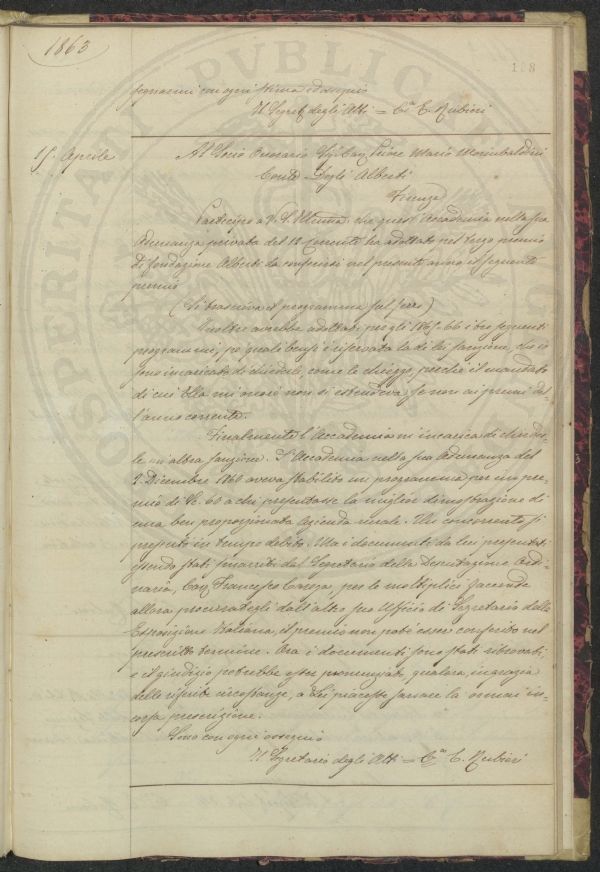 1863
128
segnarmi con ogni stima ed ossequio
Il Segret. degli Atti = C. E. Rubieri
15. Aprile
Al Socio Onorario Sig. Cav. Priore Mario Mori Ubaldini
Conte degli Alberti
Firenze
Partecipo a V. S. Illma che quest'Accademia nella sua
Adunanza privata del 12 Corrente ha adottato pel terzo premio
di fondazione Alberti da conferirsi nel presente anno il seguente
premio
(Si trascriva il programma sul)
Inoltre avrebbe adottati pegli 1865-66 i tre seguenti
programmi, pe' quali bensì è riservata la di lei sanzione, che io
sono incaricato di chiederle, come le chieggo, poichè il mandato
di cui Ella mi onorò non si estendeva se non ai premi del-
l'anno corrente.
Finalmente l'Accademia m'incarica di chieder-
le un'altra sanzione. L'Accademia nella sua Adunanza del
2. Dicembre 1860 aveva stabilito un programma per un pre-
mio di Sc. 60 a chi presentasse la miglior dimostrazione di
una ben proporzionata azienda rurale. Un concorrente si
presentò in tempo debito. Ma i documenti da lui presentati
essendo stati smarriti dal Segretario della Deputazione Ordi-
naria, Cav. Francesco Carega, per le molteplici faccende
allora procurategli dall'altro suo Ufficio di Segretario della
Esposizione Italiana, il premio non potè esser conferito nel
prescritto termine. Ora i documenti sono stati ritrovati,
e il giudizio potrebbe esser pronunziato, qualora, in grazia
delle riferite circostanze, a Lei piacesse sanare la omai in-
corsa prescrizione.
Sono con ogni ossequio
Il Segretario degli Atti = C. E. Rubieri